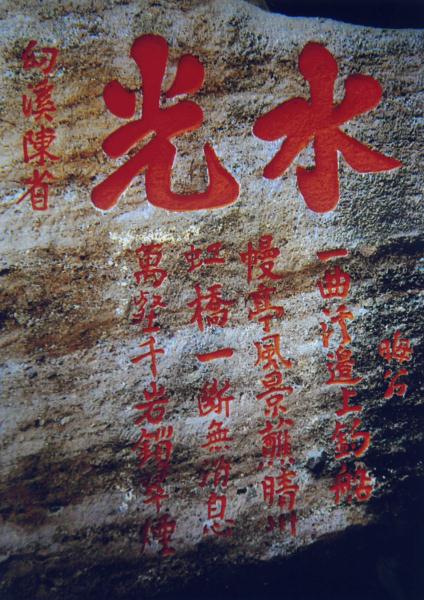 水光
晦翁
一曲溪邊上釣船
幔亭風景蘸晴川
虹橋一斷無消息
萬壑千岩鎖翠煙
幼溪陳省